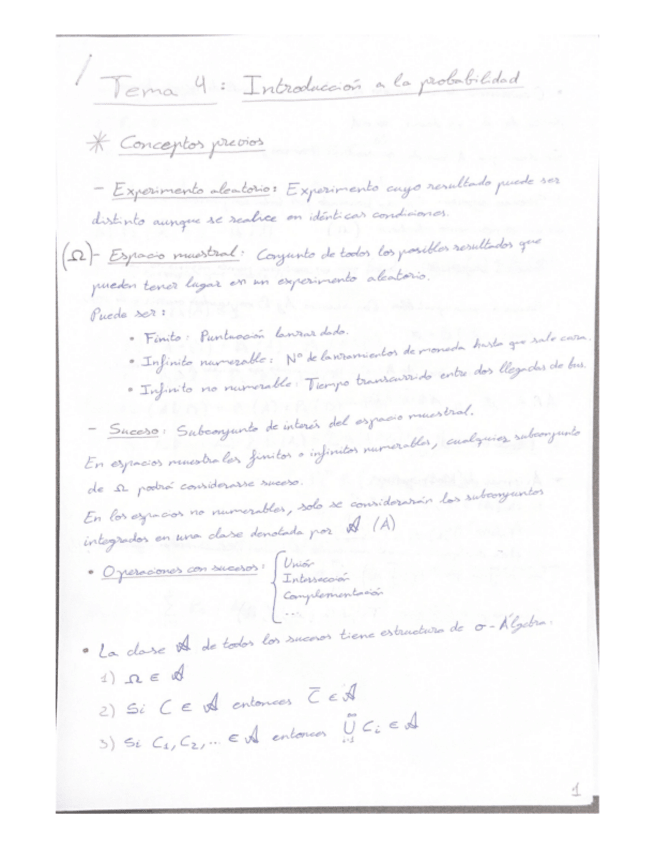 Tema 4: Introducción a la probabilidad
* Conceptos previos
- Experimento aleatorio: Experimento cuyo resultado puede ser
distinto aunque se realice en idénticas condiciones.
(Ω) - Espacio muestral: Conjunto de todos los posibles resultados que
pueden tener lugar en un experimento aleatorio.
Puede ser:
• Finito: Puntuación lanzar dado.
• Infinito numerable: Nº de lanzamientos de moneda hasta que sale cara.
• Infinito no numerable: Tiempo transcurrido entre dos llegadas de bus.
- Suceso: Subconjunto de interés del espacio muestral.
En espacios muestrales finitos o infinitos numerables, cualquier subconjunto
de Ω podrá considerarse suceso.
En los espacios no numerables, solo se considerarán los subconjuntos
integrados en una clase denotada por 𝒜 (A)
• Operaciones con sucesos: { Unión
Intersección
Complementación
...
• La clase 𝒜 de todos los sucesos tiene estructura de σ-Álgebra.
1) Ω ∈ 𝒜
2) Si C ∈ 𝒜 entonces C̅ ∈ 𝒜
3) Si C₁, C₂, ... ∈ 𝒜 entonces ⋃_{i=1}^{∞} Cᵢ ∈ 𝒜
1